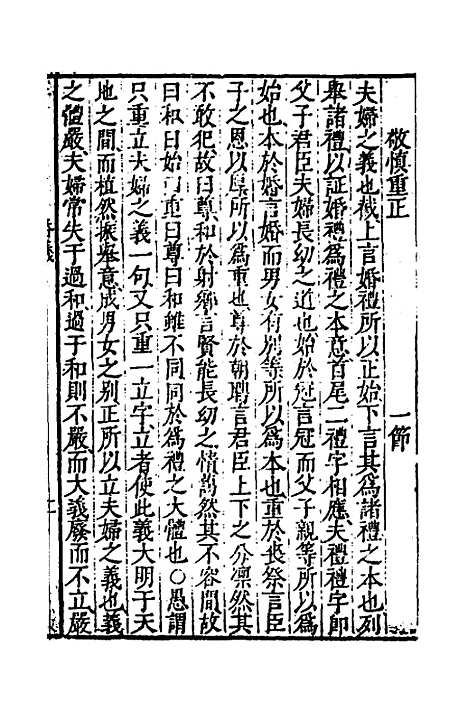 敬慎重正　一節
夫婦之義也截上言婚禮所以正始下言其為諸禮之本也列
舉諸禮以証婚禮為禮之本意首尾二禮字相應夫禮禮字即
父子君臣夫婦長幼之道也始於冠言冠而父子親等所以為
始也本於婚言婚而男女有別等所以為本也重於喪祭言臣
子之恩以厚所以為重也尊於朝聘言君臣上下之分凜然其
不敢犯故曰尊和於射鄉言賢能長幼之情藹然其不容間故
曰和曰始曰重曰尊曰和雖不同同於為禮之大體也○愚謂
只重立夫婦之義一句又只重一立字立者使此義大明于天
地之間而植然振舉意成男女之别正所以立夫婦之義也義
之體嚴夫婦常失于過和過于和則不嚴而大義廢而不立嚴